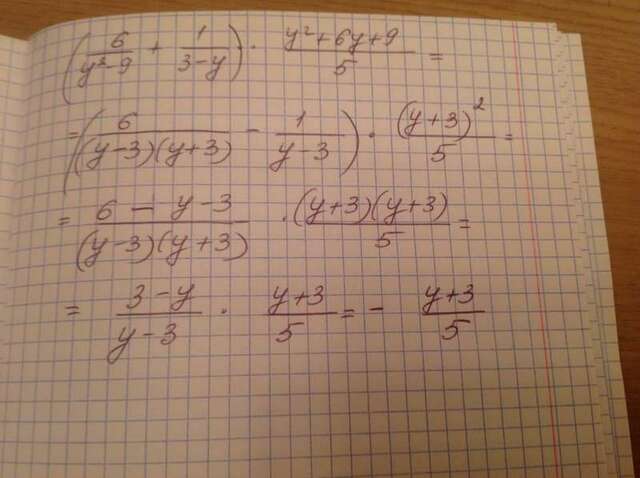 (6/(y²-9) + 1/(3-y)) · (y²+6y+9)/5 =
= (6/((y-3)(y+3)) - 1/(y-3)) · (y+3)²/5 =
= (6 - y - 3)/((y-3)(y+3)) · ((y+3)(y+3))/5 =
= (3-y)/(y-3) · (y+3)/5 = - (y+3)/5